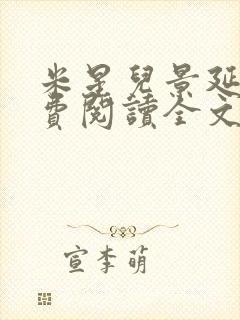 米星兒景延
費閱讀全文
宣李萌